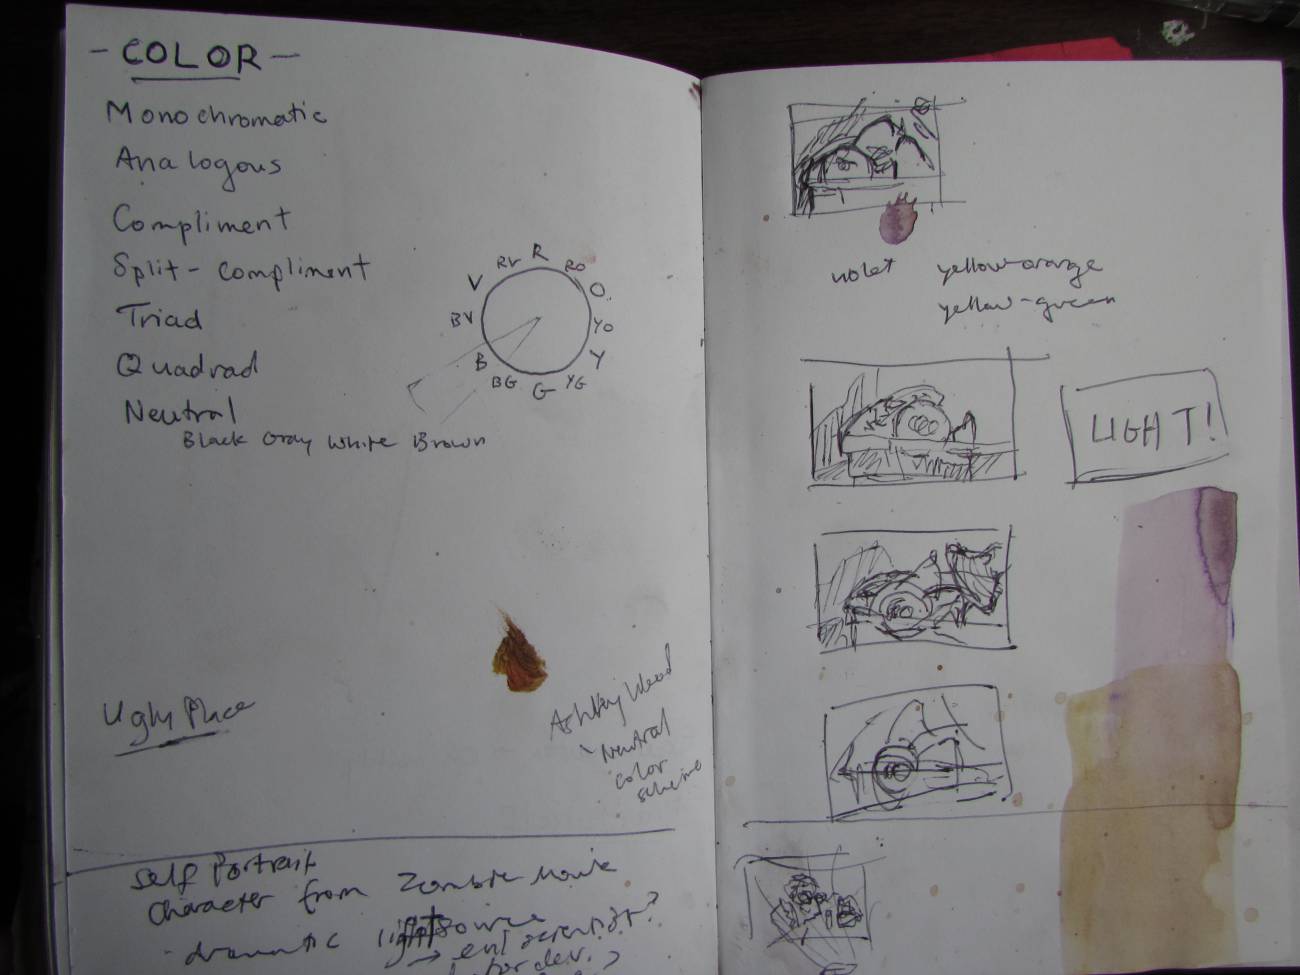 - COLOR -
Monochromatic
Analogous
Compliment
Split-compliment
Triad
Quadrad
Neutral
Black Gray White Brown
R
RO
O
YO
Y
YG
G
BG
B
BV
V
RV
Ugly Place
Ashley Wood
Neutral
color
scheme
Self Portrait
Character from Zombie Movie
- dramatic light source
→ evil scientist?
violet yellow-orange
yellow-green
LIGHT!